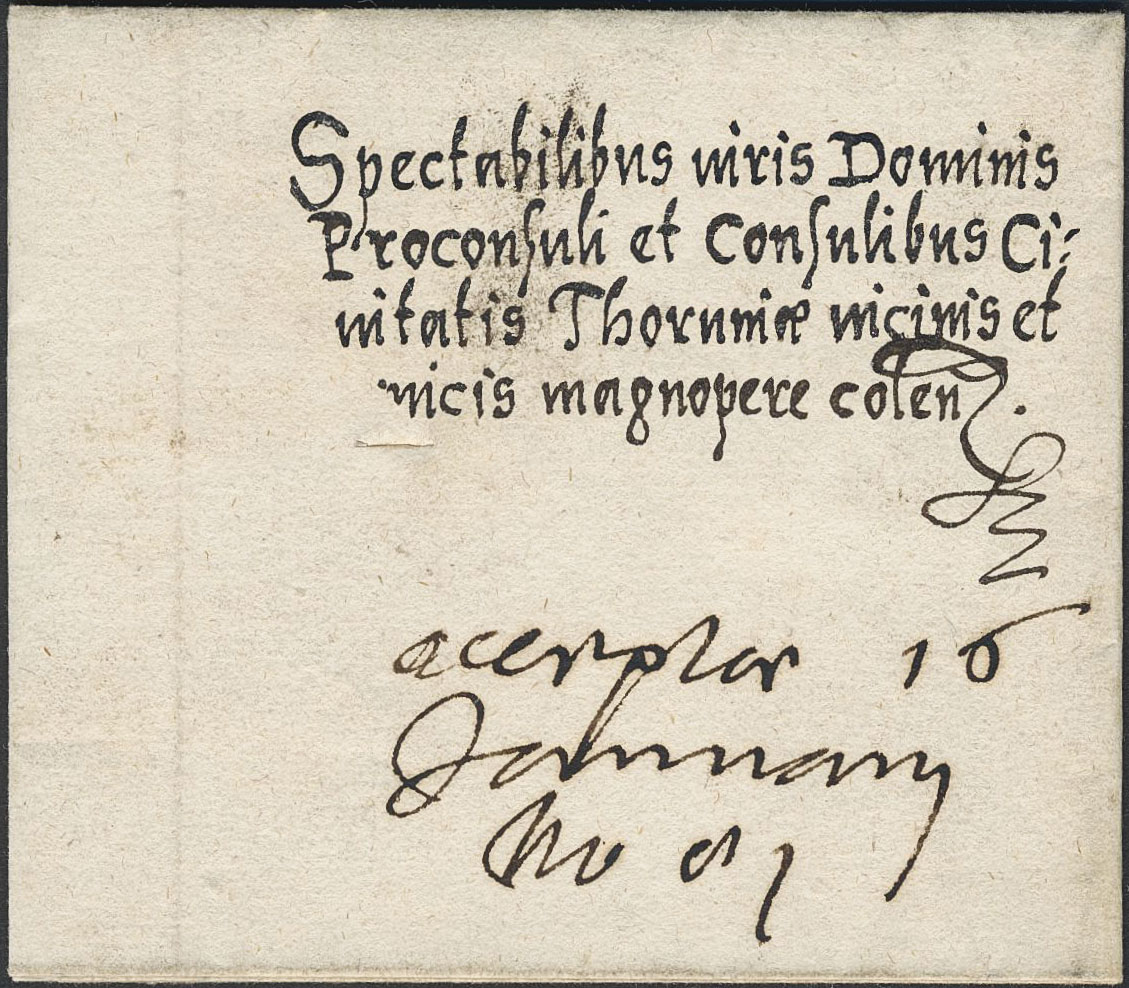 Spectabilibus uiris Dominis
Proconſuli et Conſulibus Ci-
uitatis Thoruniæ uicinis et
micis magnopere colen
16
January